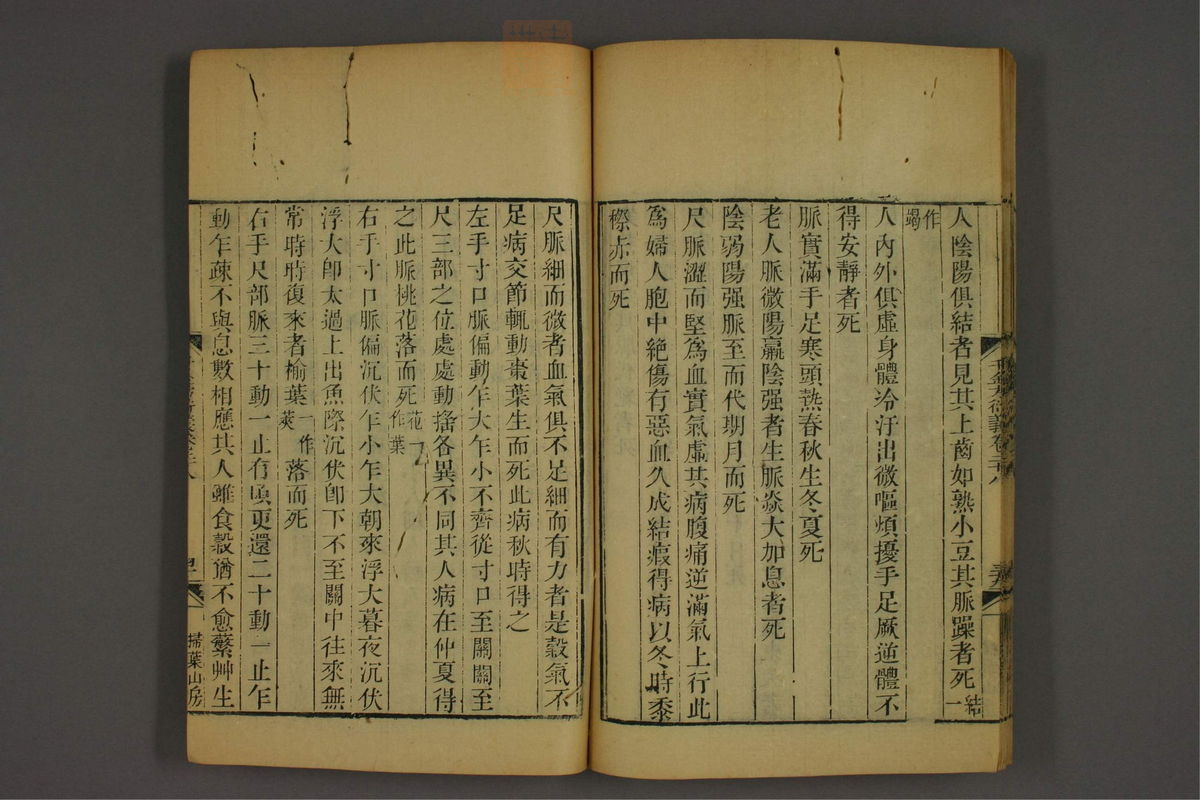 人陰陽俱結者見其上齒如熟小豆其脈躁者死結一
作竭
人內外俱虛身體冷汗出微嘔煩擾手足厥逆體不
得安靜者死
脈實滿手足寒頭熱春秋生冬夏死
老人脈微陽羸陰强者生脈焱大加息者死
陰弱陽强脈至而代期月而死
尺脈澀而堅爲血實氣虛其病腹痛逆滿氣上行此
爲婦人胞中絕傷有惡血久成結瘕得病以冬時黍
穄赤而死
尺脈細而微者血氣俱不足細而有力者是穀氣不
足病交節輒動棗葉生而死此病秋時得之
左手寸口脈偏動乍大乍小不齊從寸口至關關至
尺三部之位處處動搖各異不同其人病在仲夏得
之此脈桃花落而死花一作葉
右手寸口脈偏沉伏乍小乍大朝來浮大暮夜沉伏
浮大卽太過上出魚際沉伏卽下不至關中往來無
常時時復來者榆葉一作莢落而死
右手尺部脈三十動一止有頃更還二十動一止乍
動乍疎不與息數相應其人雖食穀猶不愈蘩艸生
掃葉山房